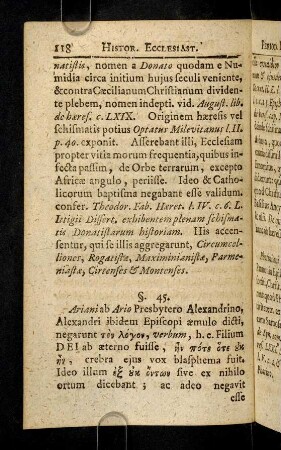 118 HISTOR. ECCLESIAST.
natistis, nomen a Donato quodam e Nu-
midia circa initium hujus seculi veniente,
& contra Cæcilianum Christianum dividen-
te plebem, nomen indepti. vid. August. lib.
de hæres. c. LXIX. Originem hæresis vel
schismatis potius Optatus Milevitanus l. II.
p. 40. exponit. Asserebant illi, Ecclesiam
propter vitia morum frequentia, quibus in-
fecta passim, de Orbe terrarum, excepto
Africæ angulo, periisse. Ideo & Catho-
licorum baptisma negabant esse validum.
confer. Theodor. Fab. Hæret. l. IV. c. 6. L.
Ittigii Dissert. exhibentem plenam schisma-
tis Donatistarum historiam. His accen-
sentur, qui se illis aggregarunt, Circumcel-
liones, Rogatistæ, Maximinianistæ, Parme-
niastæ, Circenses & Montenses.
§. 45.
Ariani ab Ario Presbytero Alexandrino,
Alexandri ibidem Episcopi æmulo dicti,
negarunt τὸν λόγον, verbum, h. e. Filium
DEI ab æterno fuisse, ἦν πότε ὅτε ἐκ
ἦν, crebra ejus vox blasphema fuit.
Ideo illum ἐξ ἐκ ὄντων sive ex nihilo
ortum dicebant; ac adeo negavit
esse